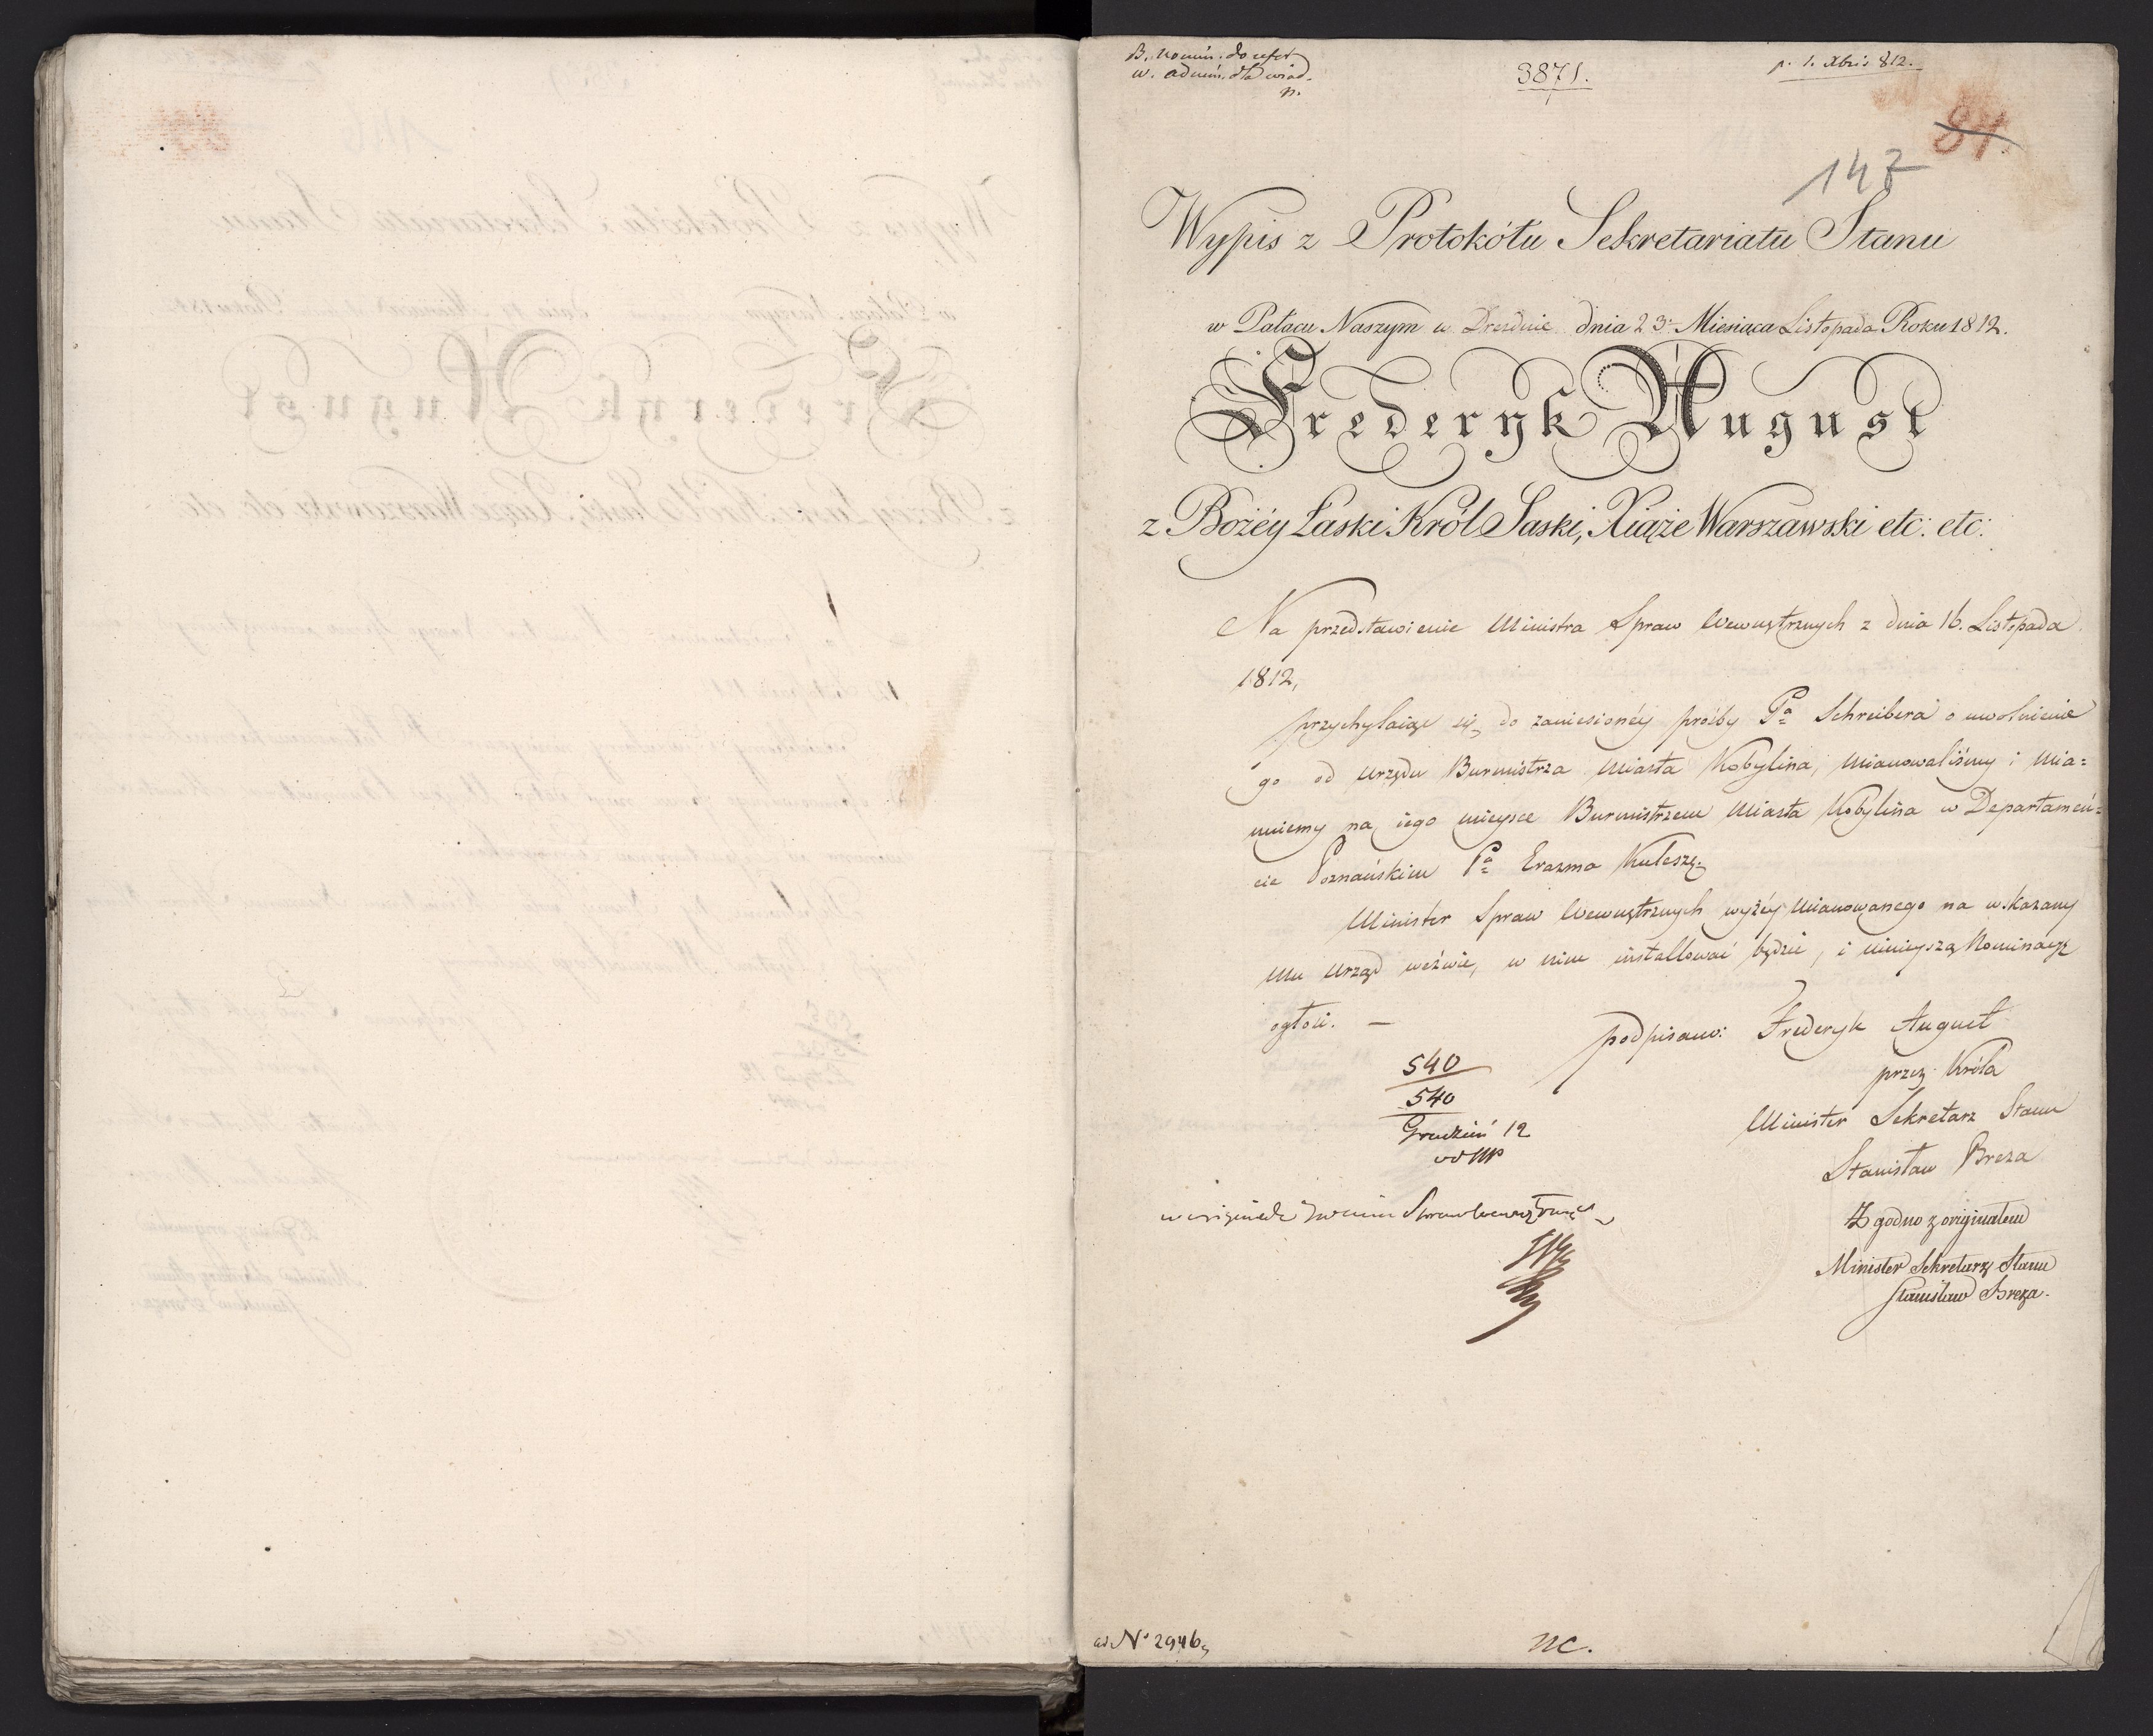 B. nomin. do refer.
w. admin. dla wiad.
n.
3871.
p. 1. Xbris 812.
84.
147
Wypis z Protokółu Sekretariatu Stanu
w Pałacu Naszym w Dreznie dnia 23. Miesiąca Listopada Roku 1812.
Frederyk August
z Bożéy Łaski Król Saski, Xiąże Warszawski etc: etc:
Na przedstawienie Ministra Spraw Wewnętrznych z dnia 16. Listopada
1812,
przychylaiąc się do zaniesionéy prośby Pa Schreibera o uwolnienie
go od Urzędu Burmistrza Miasta Kobylina, Mianowaliśmy i Mia=
nuiemy na iego mieysce Burmistrzem Miasta Kobylina w Departamen=
cie Poznańskim Pa Erazma Kuleszę.
Minister Spraw Wewnętrznych wyżéy Mianowanego na wskazany
mu Urząd weźwie, w nim installować będzie, i ninieyszą Nominacyę
ogłosi. —
podpisano: Frederyk August
przez Króla
Minister Sekretarz Stanu
Stanisław Breza
540
540
Grudzień 12
Zgodno z originałem
Minister Sekretarz Stanu
Stanisław Breza.
ad No 2946
nc.